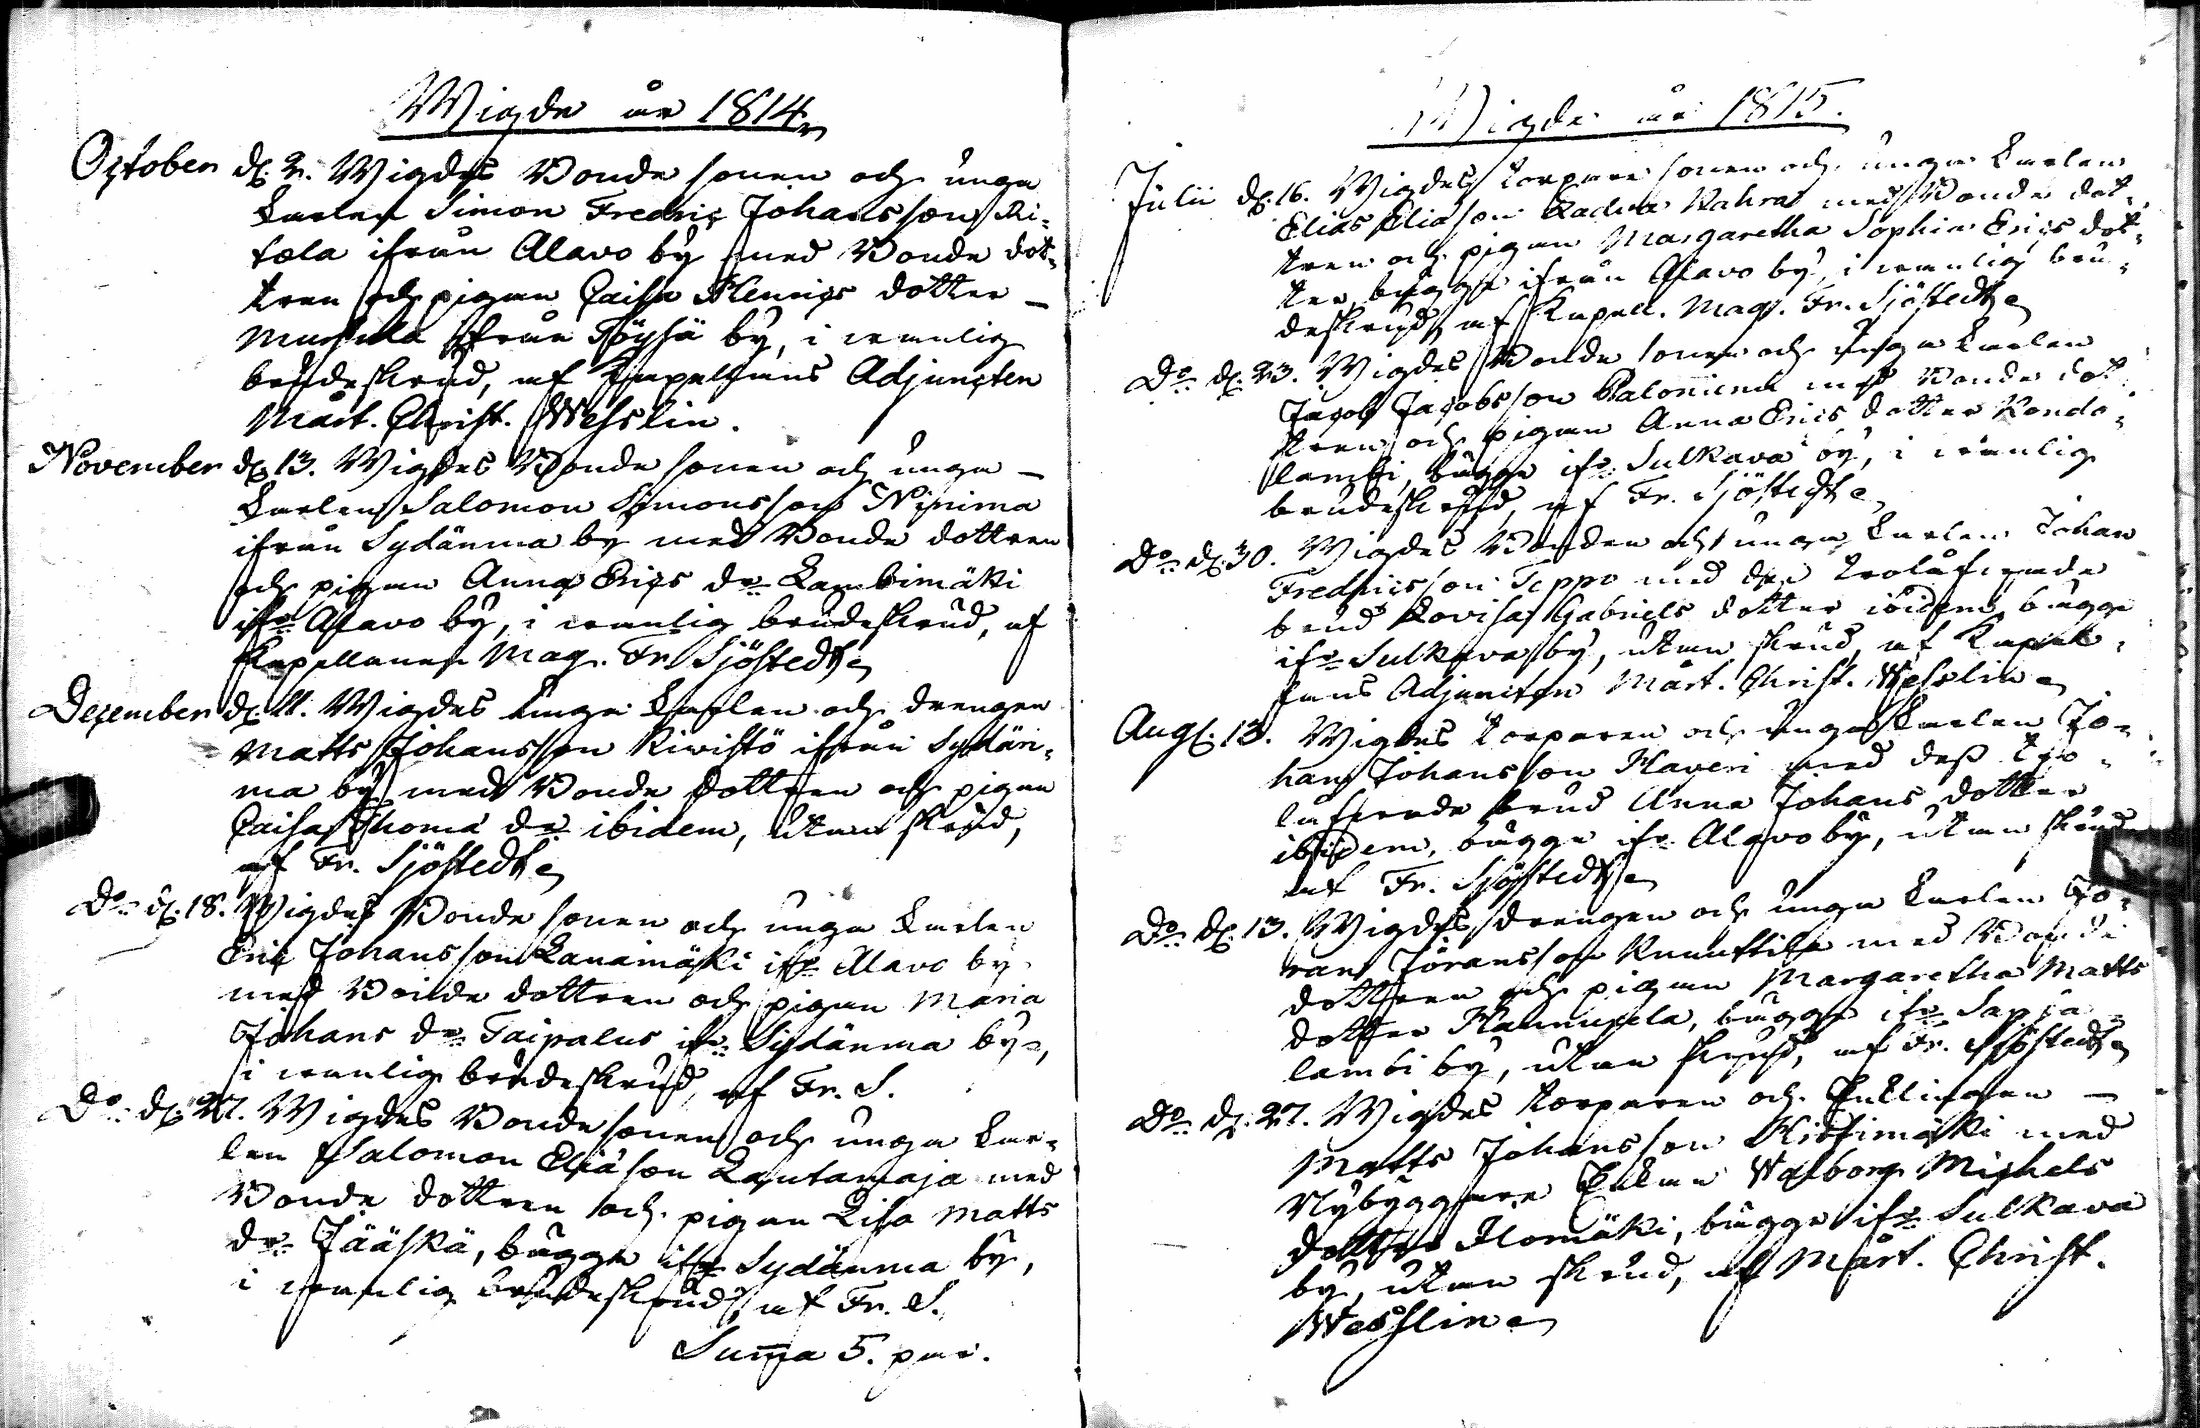 Wigde år 1814
October d. 2. Wigdes Bonde sonen och unga
Karlen Simon Fredric Johansson Ri-
tola ifrån Alavo by med Bonde dot-
tren och pigan Caisa Henrics dotter
ifrån Töysä by, i wanlig
brudeskrud, af Kapellans Adjuncten
Mårt. Christ. Wesslin.
November d. 13. Wigdes Bonde sonen och unga
Karlen Salomon Simonsson Niinima
ifrån Sydänma by med Bonde dottren
och pigan Anna Erics dr Lambimäki
ifr. Alavo by, i wanlig brudeskrud, af
Kapellanen Mag. Fr. Sjöstedt
December d. 11. Wigdes unga Karlen och drengen
Matts Johansson Kiwistö ifrån Sydän-
ma by med Bonde dottren och pigan
Caisa Thoma dr ibidem, utan skrud,
af Fr. Sjöstedt
Do d. 18. Wigdes Bonde sonen och unga Karlen
Eric Johansson Lanamäki ifr. Alavo by
med Bonde dottren och pigan Maria
Johans dr Taipalus ifr. Sydänma by,
i wanlig brudeskrud, af Fr. S.
Do d. 27. Wigdes Bonde sonen och unga Kar-
len Salomon Eliason Lautamaja med
Bonde dottren och pigan Lisa Matts
dr Jääskä, bägge ifr. Sydänma by,
i wanlig brudeskrud, af Fr. S.
Suma 5. par.
Wigde år 1815.
Julii d. 16. Wigdes torpare sonen och unga Karlen
Elias Eliason Rahras med Bonde dot-
tren och pigan Margaretha Sophia Erics dot-
ter, bägge ifrån Alavo by, i wanlig bru-
deskrud, af Kapell. Mag. Fr. Sjöstedt
Do d. 23. Wigdes Bonde sonen och unga Karlen
Jacob Jacobsson Paloniemi med Bonde dot-
tren och pigan Anna Erics dotter Kondo-
lambi, bägge ifr. Sulkava by, i wanlig
brudeskrud, af Fr. Sjöstedt
Do d. 30. Wigdes Bonden och unga Karlen Johan
Fredricsson Teppo med des trolåfwade
brud Lovisa Gabriels dotter ibidem, bägge
ifr. Sulkava by, utan skrud, af Kapel-
lans Adjuncten Mårt. Christ. Wesslin
Aug. 13. Wigdes torparen och unga Karlen Jo-
han Johansson Haveri med dess tro-
låfwade brud Anna Johans dotter
ibidem, bägge ifr. Alavo by, utan skrud
af Fr. Sjöstedt
Do d. 13. Wigdes drengen och unga Karlen Jö-
ran Jöransson Knuuttila med Bonde
dottren och pigan Margaretha Matts
dotter Hannuxela, bägge ifr. Sapsa-
lambi by, utan skrud, af Fr. Sjöstedt
Do d. 27. Wigdes torparen och Enklingen
Matts Johansson Hietimäki med
Nybyggare Enkan Walborg Michels
dotter Alomäki, bägge ifr. Sulkava
by, utan skrud, af Mårt. Christ.
Wesslin